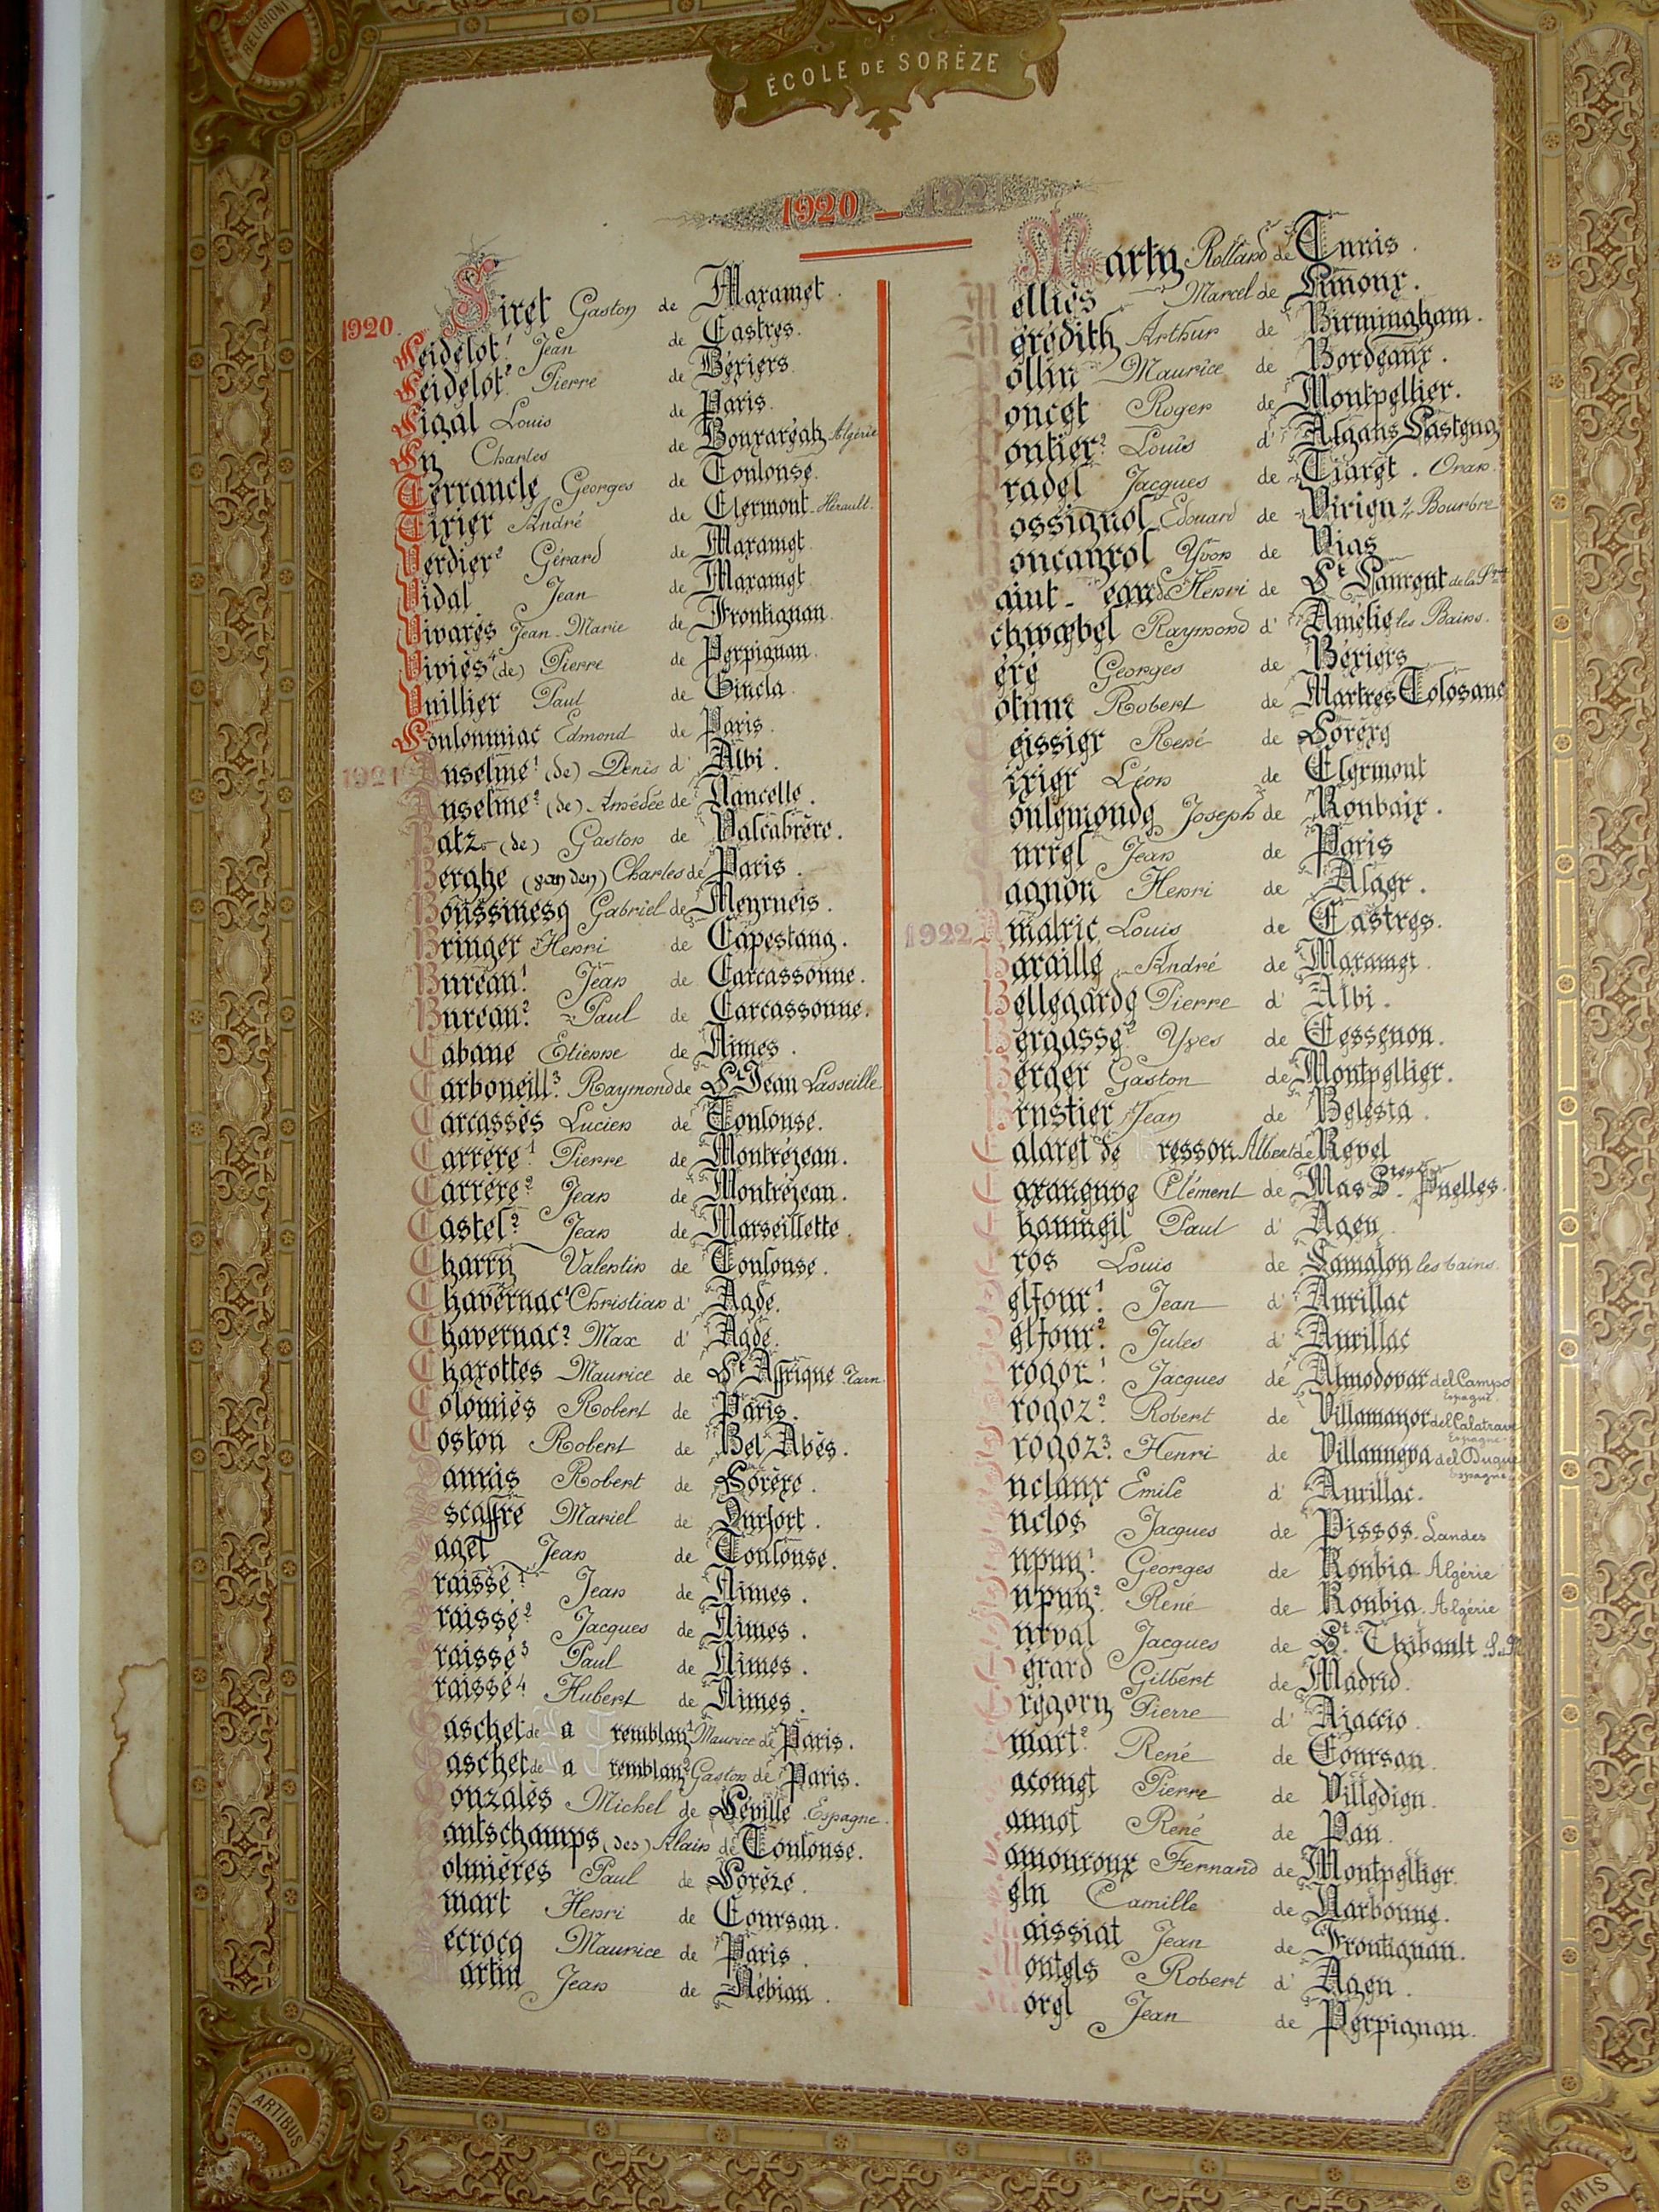 RELIGIONI
ÉCOLE DE SORÈZE
1920 — 1921
1920.
Siret Gaston de Mazamet.
Seidelot¹ Jean de Castres.
Seidelot² Pierre de Béziers
Sigal Louis de Paris.
Sy Charles de Bouxaréah Algérie
Terrancle Georges de Toulouse.
Tixier André de Clermont-Hérault.
Verdier² Gérard de Mazamet.
Vidal Jean de Mazamet
Vivarés Jean-Marie de Frontignan.
Viviés⁴ (de) Pierre de Perpignan.
Vuillier Paul de Gincla.
Soulonmiac Edmond de Paris.
1921 Anselme¹ (de) Denis d' Albi.
Anselme² (de) Amédée de Nancelle.
Batz (de) Gaston de Valcabrère.
Berghe (van den) Charles de Paris.
Boussinesq Gabriel de Meyrueis.
Bringer Henri de Capestang.
Bureau¹ Jean de Carcassonne.
Bureau² Paul de Carcassonne.
Cabane Etienne de Nimes.
Carboneill³ Raymond de St Jean Lasseille
Carcassès Lucien de Toulouse.
Carrère¹ Pierre de Montréjeau.
Carrère² Jean de Montréjeau.
Castel² Jean de Marseillette.
Charry Valentin de Toulouse.
Chavernac¹ Christian d' Agde.
Chavernac² Max d' Agde.
Chazottes Maurice de St Affrique Tarn.
Colomiès Robert de Paris.
Coston Robert de Bel Abès.
auris Robert de Sorèze.
scaffre Mariel de Durfort.
aget Jean de Toulouse.
raisse¹ Jean de Nimes.
raisse² Jacques de Nimes.
raisse³ Paul de Nimes.
raisse⁴ Hubert de Nimes.
aschet de La Tremblay¹ Maurice de Paris.
aschet de La Tremblay² Gaston de Paris.
onzalès Michel de Séville. Espagne.
autschamps (des) Alain de Toulouse.
olmières Paul de Sorèze.
mart Henri de Coursan.
ecrocq Maurice de Paris.
artin Jean de Nébian.
Marty Rolland² de Tunis.
Melliès Marcel de Limoux.
Mérédith Arthur de Birmingham.
Pollin Maurice de Bordeaux.
Poncet Roger de Montpellier.
Pontier² Louis d' Algans Lastens
Pradel Jacques de Tiaret. Oran.
Rossignol Edouard de Virieu s/ Bourbre
Roncayrol Yvon de Vias
aint-Jean de Henri de St Laurent de la
chwœbel Raymond d' Amélie les Bains.
éré Georges de Béziers
otum Robert de Martres Tolosane
eissier René de Sorèze
ixier Léon de Clermont
oulemonde Joseph de Roubaix.
urrel Jean de Paris
agnon Henri de Alger.
1922 Amalric Louis de Castres.
Baraille André de Mazamet.
Bellegarde Pierre d' Albi.
Bergasse² Yves de Cessenon.
Berger Gaston de Montpellier.
Brustier Jean de Belesta.
Calaret de Bresson Albert de Revel
Cazaneuve Clément de Mas Stes Puelles.
Chaumeil Paul d' Agen.
Cros Louis de Lamalou les bains.
elfour¹ Jean d' Aurillac
elfour² Jules d' Aurillac
rogoz¹ Jacques de Almodovar del Campo Espagne.
rogoz² Robert de Villamayor del Calatrave Espagne.
rogoz³ Henri de Villanueva del Duque Espagne.
uclaux Emile d' Aurillac.
uclos Jacques de Pissos. Landes
upuy¹ Georges de Roubia Algérie
upuy² René de Roubia. Algérie
urval Jacques de St Thibault
Gérard Gilbert de Madrid.
Grégory Pierre d' Ajaccio.
mart² René de Coursan.
acomet Pierre de Villedieu.
annot René de Pau.
amouroux Fernand de Montpellier.
ély Camille de Narbonne.
Maissiat Jean de Frontignan.
Montels Robert d' Agen.
Morel Jean de Perpignan.
ARTIBUS
RMIS